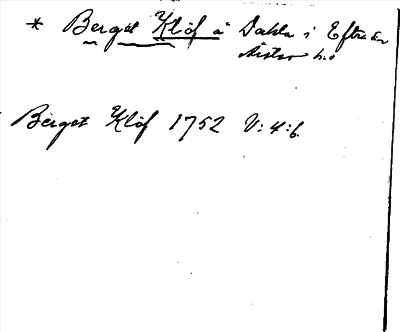 * Berget Klöf å Dahla i Eftra sn
Årstad h:d
Berget Klöf 1752 V:4:6.